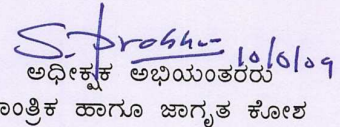 S. Prabhu 10/6/09
ಅಧೀಕ್ಷಕ ಅಭಿಯಂತರರು
ಾಂತ್ರಿಕ ಹಾಗೂ ಜಾಗೃತ ಕೋಶ